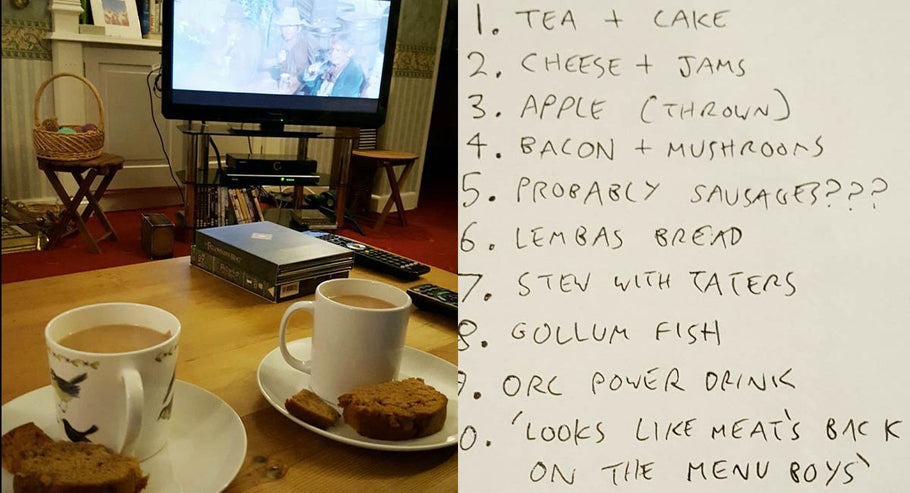 1. TEA + CAKE
2. CHEESE + JAMS
3. APPLE (THROWN)
4. BACON + MUSHROOMS
5. PROBABLY SAUSAGES???
6. LEMBAS BREAD
7. STEW WITH TATERS
8. GOLLUM FISH
9. ORC POWER DRINK
0. 'LOOKS LIKE MEAT'S BACK
ON THE MENU BOYS'